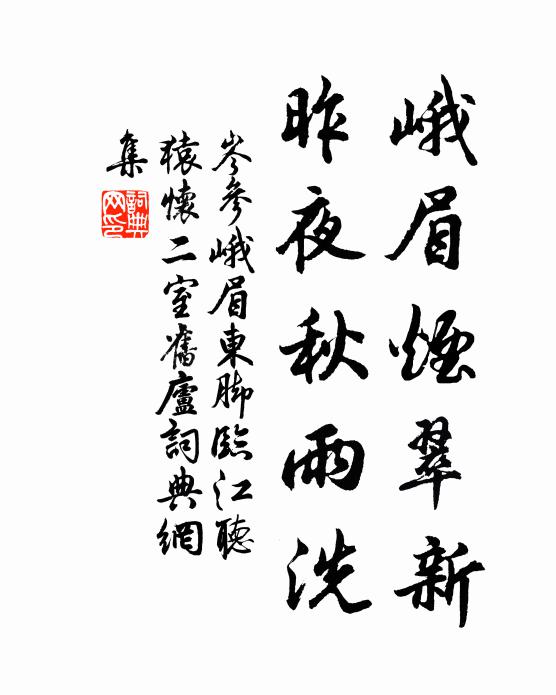 峨眉煙翠新
昨夜秋雨洗
岑參峨眉東脚臨江聽
猿懷二室舊廬詞典網
集
詞典
网印